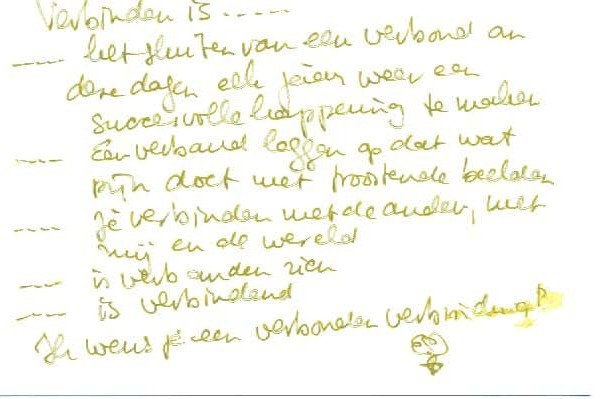 Verbinden is .....
---- het sluiten van een verbond an
deze dagen elk jaar weer een
succesvolle happening te maken
---- Een verband leggen op dat wat
pijn doet met troostende beelden
---- je verbinden met de ander, met
mij en de wereld
---- is verbanden zien
---- is verbindend
Ik wens je een verbonden verbinding!